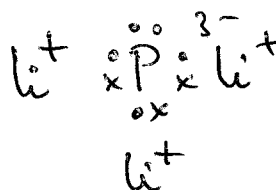 Li⁺ P ³⁻ Li⁺
Li⁺